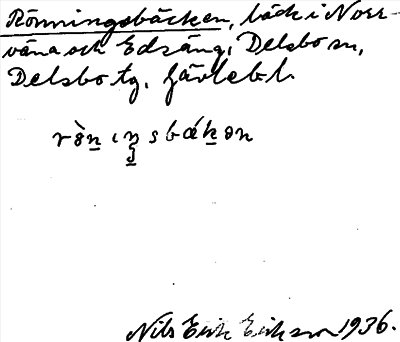 Rönningsbäcken, bäck i Norr-
väna och Edsäng, Delsbo sn,
Delsbo tg, Gävlebl.
rönıŋsbäkən
Nils Erik Eriksson 1936.